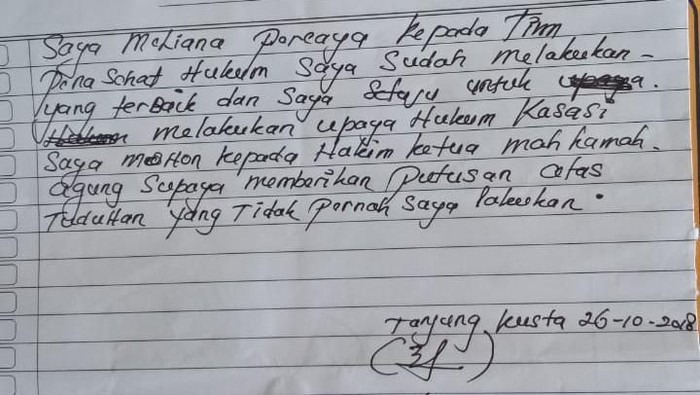 Saya Meliana Percaya kepada Tim
PenaSehat Hukum Saya Sudah melakukan
yang terbaik dan Saya Setuju untuk
melakukan upaya Hukum Kasasi
Saya moHon kepada Hakim ketua mahkamah
agung Supaya memberikan putusan atas
TuduHan yang Tidak pernah Saya lakukan.
Tanjung kusta 26-10-2018